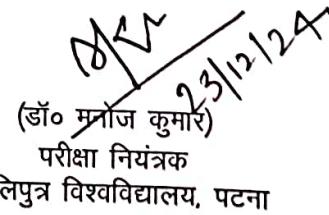 23/12/24
(डॉ० मनोज कुमार)
परीक्षा नियंत्रक
लिपुत्र विश्वविद्यालय, पटना